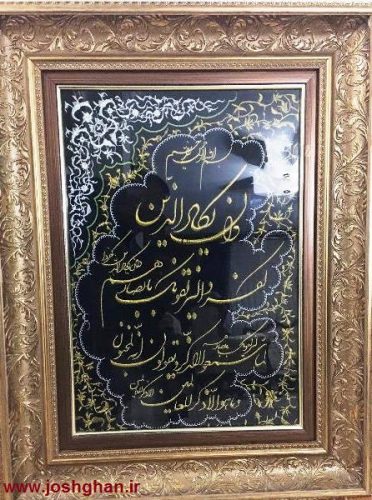 بسم الله الرحمن الرحیم
وان یکاد الذین
کفروا لیزلقونک بابصارهم
لما سمعوا الذکر و یقولون انه لمجنون
و ما هو الا ذکر للعالمین
www.joshghan.ir